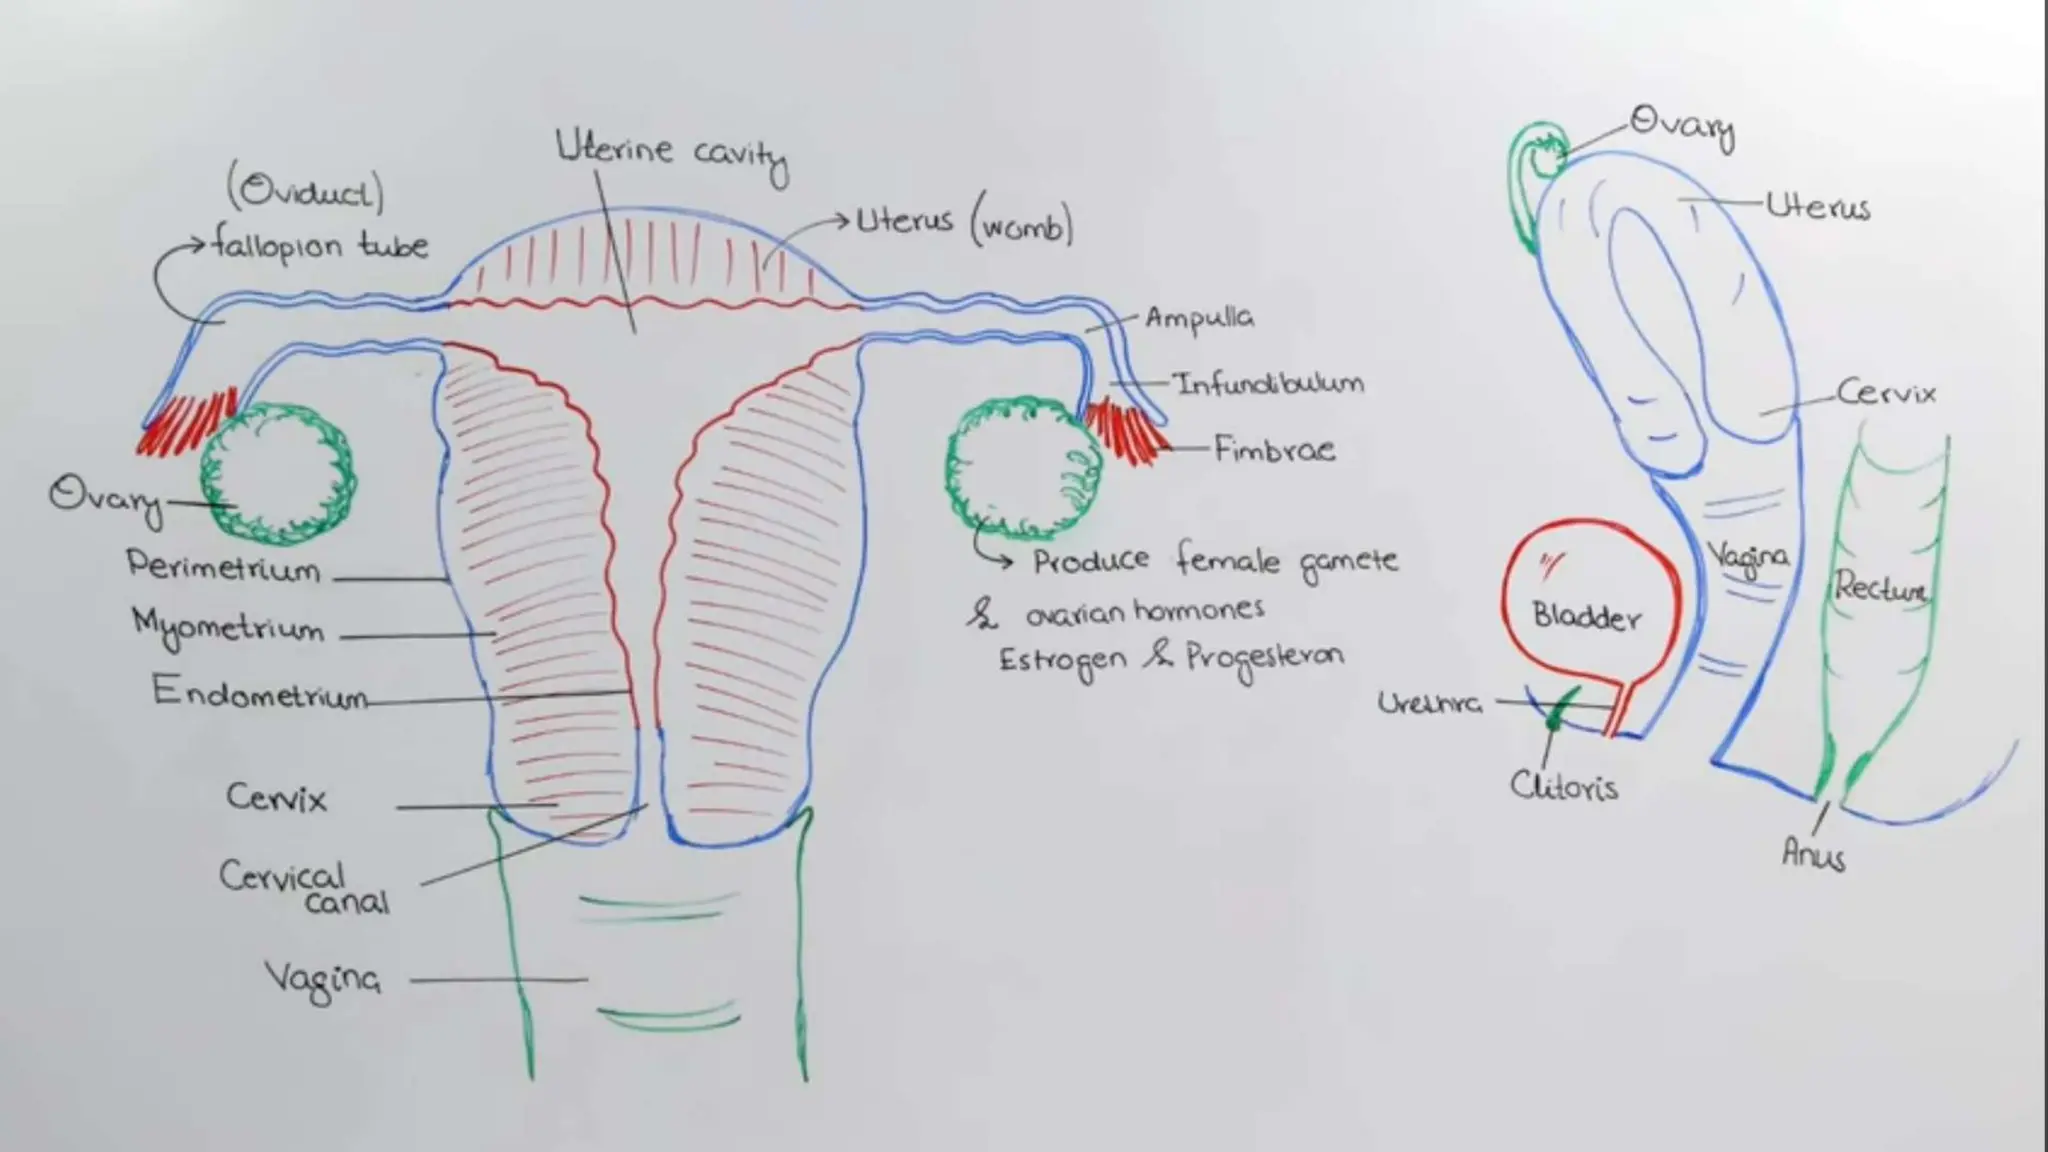 Uterine cavity
(Oviduct)
fallopion tube
Uterus (womb)
Ampulla
Infundibulum
Fimbrae
Ovary
Perimetrium
Myometrium
Endometrium
Cervix
Cervical
canal
Vagina
Produce female gamete
& ovarian hormones
Estrogen & Progesteron
Ovary
Uterus
Cervix
Vagina
Rectum
Bladder
Urethra
Clitoris
Anus